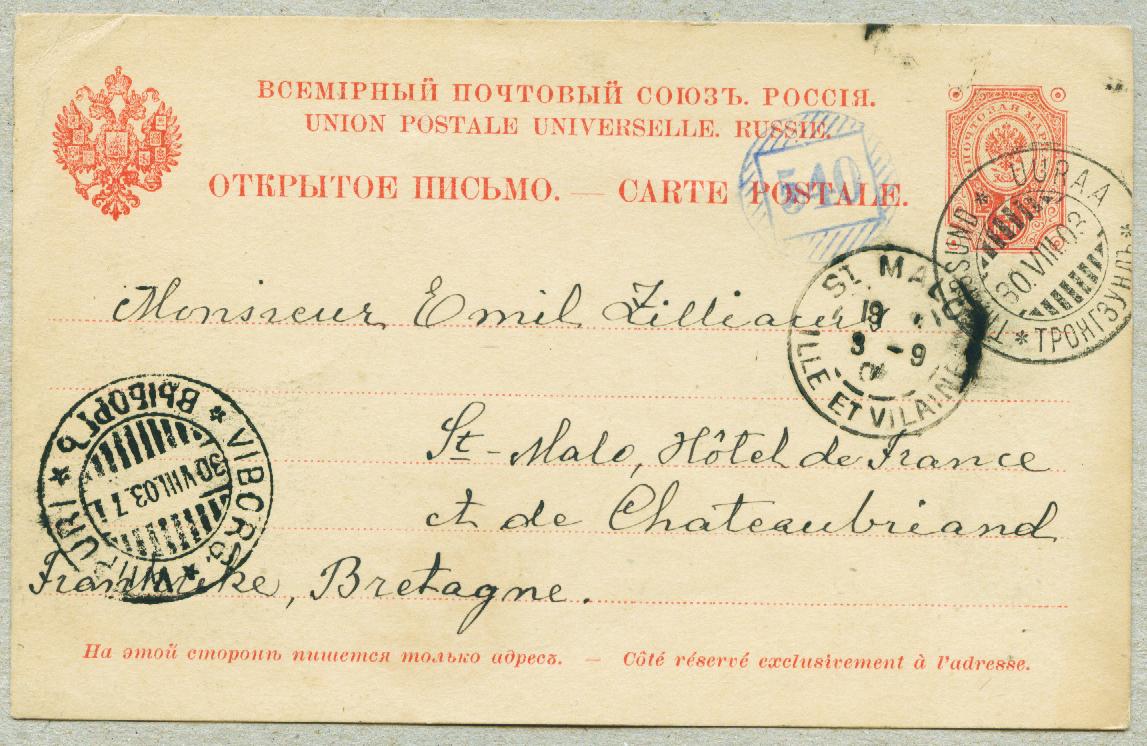 ВСЕМІРНЫЙ ПОЧТОВЫЙ СОЮЗЪ. РОССІЯ.
UNION POSTALE UNIVERSELLE. RUSSIE.
ОТКРЫТОЕ ПИСЬМО. — CARTE POSTALE.
ПОЧТОВАЯ МАРКА
540
UURAA * ТРОНГЗУНДЪ * TRÅNGSUND *
30.VIII.03
ST. MALO
ILLE ET VILAINE
3 - 9
Monsieur Emil Zilliacus
St-Malo, Hôtel de France
et de Chateaubriand
Frankrike, Bretagne.
VIBORG. * VIIPURI * ВЫБОРГЪ *
30.VIII.03.7
На этой сторонѣ пишется только адресъ. — Côté réservé exclusivement à l'adresse.